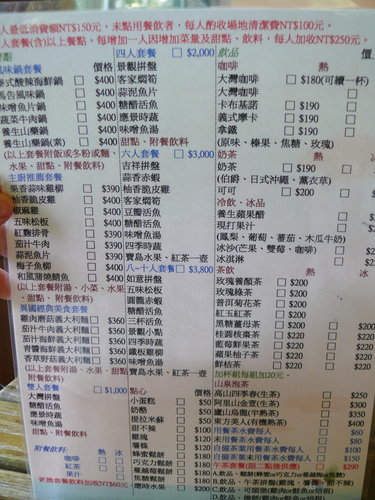 人最低消費額NT$150元,未點用餐飲者,每人酌收場地清潔費NT$100元。
人套餐(含)以上餐點,每增加一人因增加菜量及甜點、飲料,每人加收NT$250元。
風味鍋套餐 價格
泰式酸辣海鮮鍋 □ $400
馬告風味鍋 □ $400
味噌魚片鍋 □ $400
蔬菜牛肉鍋 □ $400
養生山藥鍋 □ $400
養生山藥鍋(素) □ $400
(以上套餐附飯或冬粉或麵、
水果、甜點、附餐飲料)
主廚推薦套餐
果香蒜味雞柳 □ $390
柚香脆皮雞 □ $400
椒麻雞 □ $400
五味松板 □ $400
紅麴排骨 □ $400
茄汁牛肉 □ $390
蒜泥魚片 □ $390
梅子魚柳 □ $400
和風蒲燒鯛魚 □ $400
(以上套餐附湯、小菜、水果、
甜點、附餐飲料)
異國經典美食套餐
雞肉蘑菇義大利麵 □ $360
茄汁牛肉義大利麵 □ $360
茄汁海鮮義大利麵 □ $360
青醬海鮮義大利麵 □ $360
香草野菇義大利麵 □ $360
(以上套餐附湯、水果、甜點
附餐飲料)
雙人套餐 □ $1,000
大灣拼盤
糖醋活魚
應景蔬菜
味噌魚湯
甜點、附餐飲料
附餐飲料: 熱 冰
咖啡 □ □
紅茶 □ □
果汁 □
更換套餐飲料加收NT$60元
四人套餐 □ $2,000
景觀拼盤
客家燜筍
蒜泥魚片
糖醋活魚
應景時蔬
味噌魚湯
甜點、附餐飲料
六人套餐 □ $3,000
吉祥拼盤
蒜香赤蝦
柚香脆皮雞
客家燜筍
豆瓣活魚
糖醋活魚
味噌魚湯
四季時蔬
寶島水果、紅茶一壺
八~十人套餐 □ $3,800
如意拼盤
五味松板
圓鱈赤蝦
糖醋活魚
三杯活魚
景觀小點
四季時蔬
鐵板雞柳
味噌魚湯
寶島水果、紅茶一壺
點心 價格
小蛋糕 □ $50
奶酪 □ $50
提拉米蘇 □ $50
甜不辣 □ $50
雞塊 □ $50
薯條 □ $50
蜂蜜鬆餅 □ $50
巧克力鬆餅 □ $50
藍莓鬆餅 □ $50
焦糖鬆餅 □ $50
應時水果 □ $200
飲品
咖啡 熱 冰
大灣咖啡 □ $180(可續一杯)
大灣咖啡 □
卡布基諾 □ $190 □
義式摩卡 □ $190 □
拿鐵 □ $190 □
(原味、榛果、焦糖、玫瑰)
奶茶 熱 冰
奶茶 □ $190 □
(伯爵、日式沖繩、薰衣草)
可可 □ $200 □
冷飲、冰品
養生蘋果醋 □
現打果汁 □
(鳳梨、葡萄、蕃茄、木瓜牛奶)
冰沙(芒果、雙莓、咖啡) □
冰淇淋 □
茶飲 熱 冰
玫瑰養顏茶 □ $200
玫瑰綠茶 □ $200
普洱菊花茶 □ $200
紅玉紅茶 □ $200
黑糖薑母茶 □ $200
桂圓桃棗茶 □ $220 □ $220
藍莓鮮果茶 □ $220 □ $220
蘋果柚子茶 □ $220 □ $220
鮮桔茶 □ $220 □ $220
加杯粗每組加20元。
山泉泡茶
高山四季春(生茶) □ $250
阿里山金萱(生茶) □ $300
盧山烏龍(半熟茶) □ $350
東方美人(有機熟茶) □ $400
用餐茶水費每人 □ $60
未用餐茶水費每人 □ $80
自備茶葉用餐茶水費每人 □ $100
自備茶葉未用餐茶水費每人 □ $120
午茶套餐(限二點後供應) □ $290